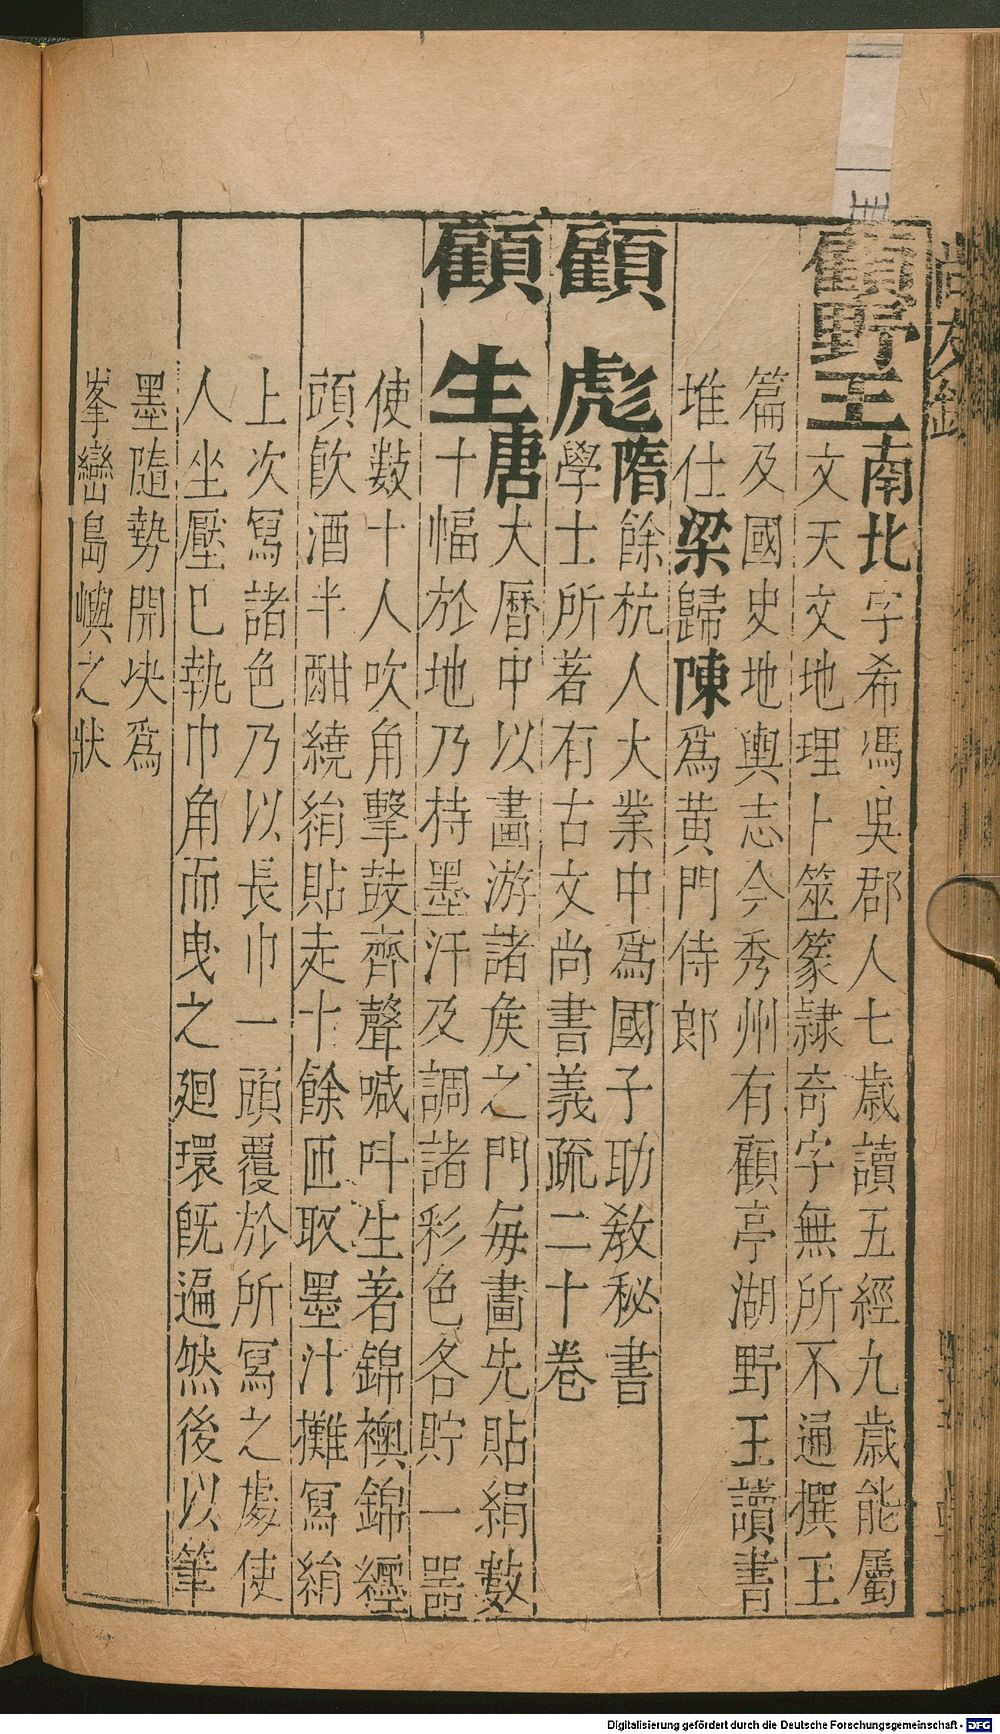 顧野王
南北字希馮吳郡人七歲讀五經九歲能屬
文天文地理卜筮篆隷奇字無所不通撰王
篇及國史地輿志今秀州有顧亭湖野王讀書
堆仕梁歸陳爲黄門侍郎
顧彪
隋餘杭人大業中爲國子助教秘書
學士所著有古文尚書義疏二十卷
顧生
唐大曆中以畫游諸矦之門每畫先貼絹數
十幅於地乃持墨汗及調諸彩色各貯一器
使數十人吹角擊鼓齊聲喊呌生着錦襖錦經
頭飮酒半酣繞絹貼走十餘匝取墨汁攤冩絹
上次冩諸色乃以長巾一頭覆於所冩之處使
人坐壓巳執巾角而曳之廻環旣遍然後以筆
墨隨勢開决爲
峯巒島嶼之狀
尚友錄
Digitalisierung gefördert durch die Deutsche Forschungsgemeinschaft - DFG